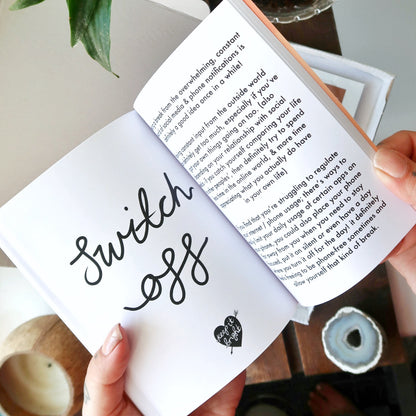 Switch
off
keep it
bright
break from the overwhelming, constant
of social media & phone notifications is
a good idea once in a while!
constant input from the outside world
get too much, especially if you've
of your own things going on too. (also
on your relationship with social
if you catch yourself comparing your life
people's, then definitely try to spend
time in the online world, & more time
what you actually do have
in your own life)
find that you're struggling to regulate
phone usage, there's ways to
your daily usage of certain apps on
phone, you could also place your phone
away from you when you need to stay
put it on silent or even have a day
you turn it off for the day! it definitely
to be phone-free sometimes and
allow yourself that kind of break.